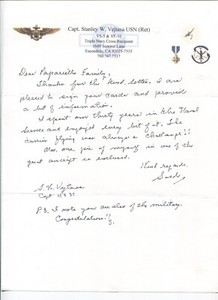 Capt. Stanley W. Vejtasa USN (Ret)
VS-5 & VF-10
Triple Navy Cross Recipient
Escondido, CA 92029-7333
Dear Paparella Family,
Thanks for the kind letter. I am
pleased to sign your cards and provide
a bit of information.
I spent over thirty years in the Naval
Service and enjoyed every bit of it. The
Carrier flying was always a challenge!!
Also, am join of in one of the
great aircraft in
Kind regards
Swede
S. W. Vejtasa
Capt USN
P.S. I note you are also of the military.
Congratulations!!
S.